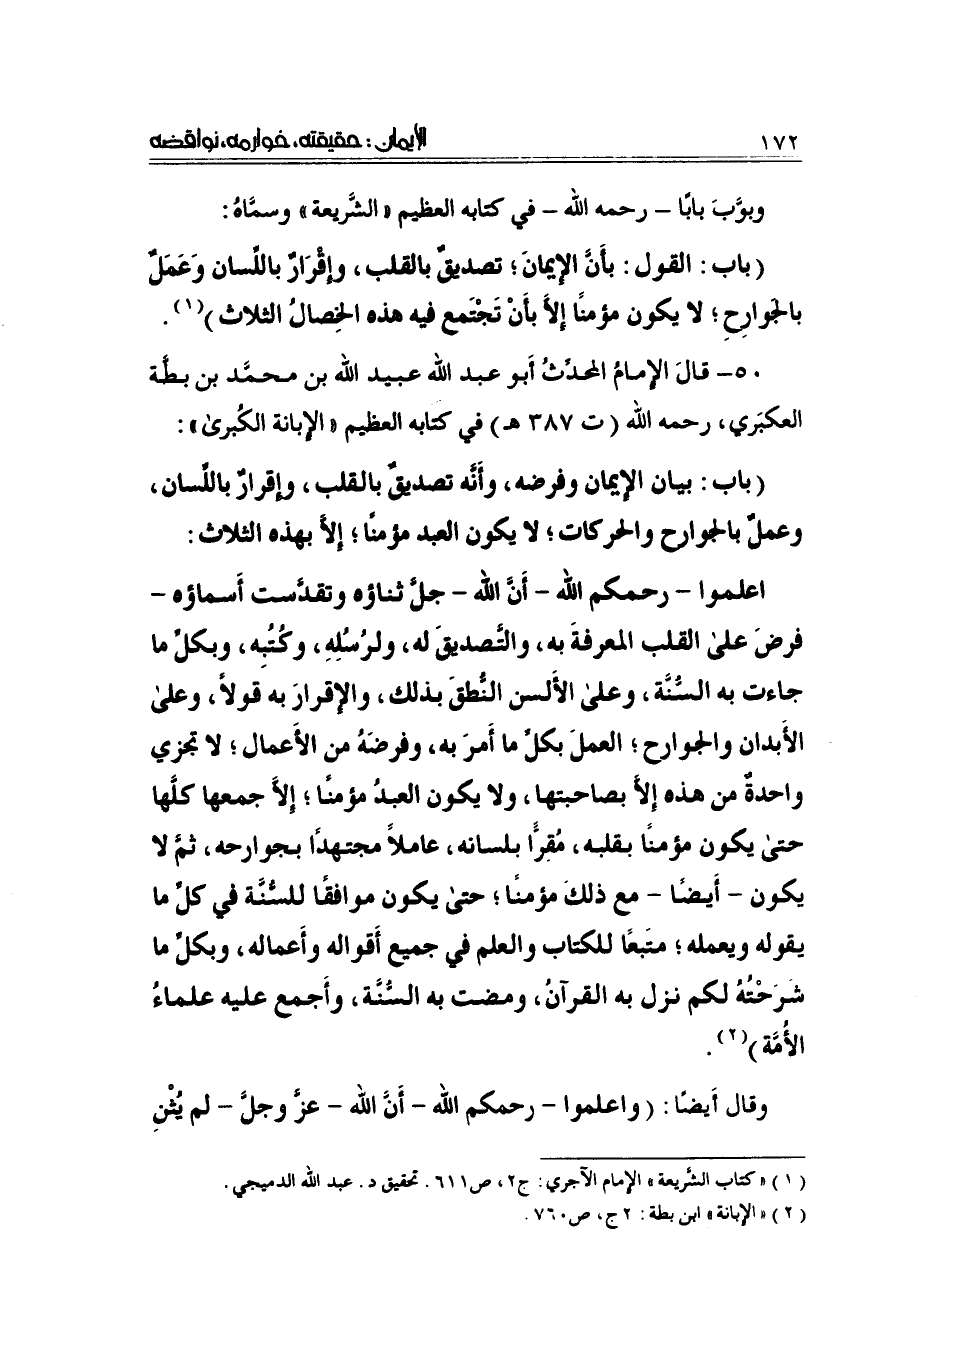 ١٧٢ الإيمان: حقيقته، خوارمه، نواقضه
وبوَّبَ بابًا – رحمه الله – في كتابه العظيم «الشَّريعة» وسمَّاهُ:
(باب: القول: بأنَّ الإيمانَ؛ تصديقٌ بالقلب، وإقْرَارٌ باللِّسان وَعَمَلٌ
بالجَوارِحِ؛ لا يكون مؤمنًا إلاَّ بأنْ تَجْتَمع فيه هذه الخِصالُ الثلاث)(١).
٥٠– قالَ الإمامُ المحدِّثُ أبو عبد الله عبيد الله بن محمَّد بن بطَّة
العكبَري، رحمه الله (ت ٣٨٧ هـ) في كتابه العظيم «الإبانة الكُبرىٰ»:
(باب: بيان الإيمان وفرضه، وأنَّه تصديقٌ بالقلب، وإقرارٌ باللِّسان،
وعملٌ بالجوارح والحركات؛ لا يكون العبد مؤمنًا؛ إلاَّ بهذه الثلاث:
اعلموا – رحمكم الله – أنَّ الله – جلَّ ثناؤه وتقدَّست أسماؤه –
فرضَ علىٰ القلب المعرفةَ به، والتَّصديقَ له، ولرُسُلِهِ، وكُتُبِه، وبكلِّ ما
جاءت به السُّنَّة، وعلىٰ الألسن النُّطقَ بذلك، والإقرارَ به قولاً، وعلىٰ
الأبدان والجوارح؛ العملَ بكلِّ ما أمرَ به، وفرضَهُ من الأعمال؛ لا تجزي
واحدةٌ من هذه إلاَّ بصاحبتها، ولا يكون العبدُ مؤمنًا؛ إلاَّ جمعها كلَّها
حتىٰ يكون مؤمنًا بقلبه، مُقِرًّا بلسانه، عاملاً مجتهدًا بجوارحه، ثمَّ لا
يكون – أيضًا – مع ذلكَ مؤمنًا؛ حتىٰ يكون موافقًا للسُّنَّة في كلِّ ما
يقوله ويعمله؛ متبعًا للكتاب والعلم في جميع أقواله وأعماله، وبكلِّ ما
شَرَحْتُهُ لكم نزل به القرآنُ، ومضت به السُّنَّة، وأجمع عليه علماءُ
الأُمَّة)(٢).
وقال أيضًا: (واعلموا – رحمكم الله – أنَّ الله – عزَّ وجلَّ – لم يُثْنِ
(١) «كتاب الشَّريعة» الإمام الآجري: ج٢، ص٦١١. تحقيق د. عبد الله الدميجي.
(٢) «الإبانة» ابن بطة: ٢ج، ص٧٦٠.